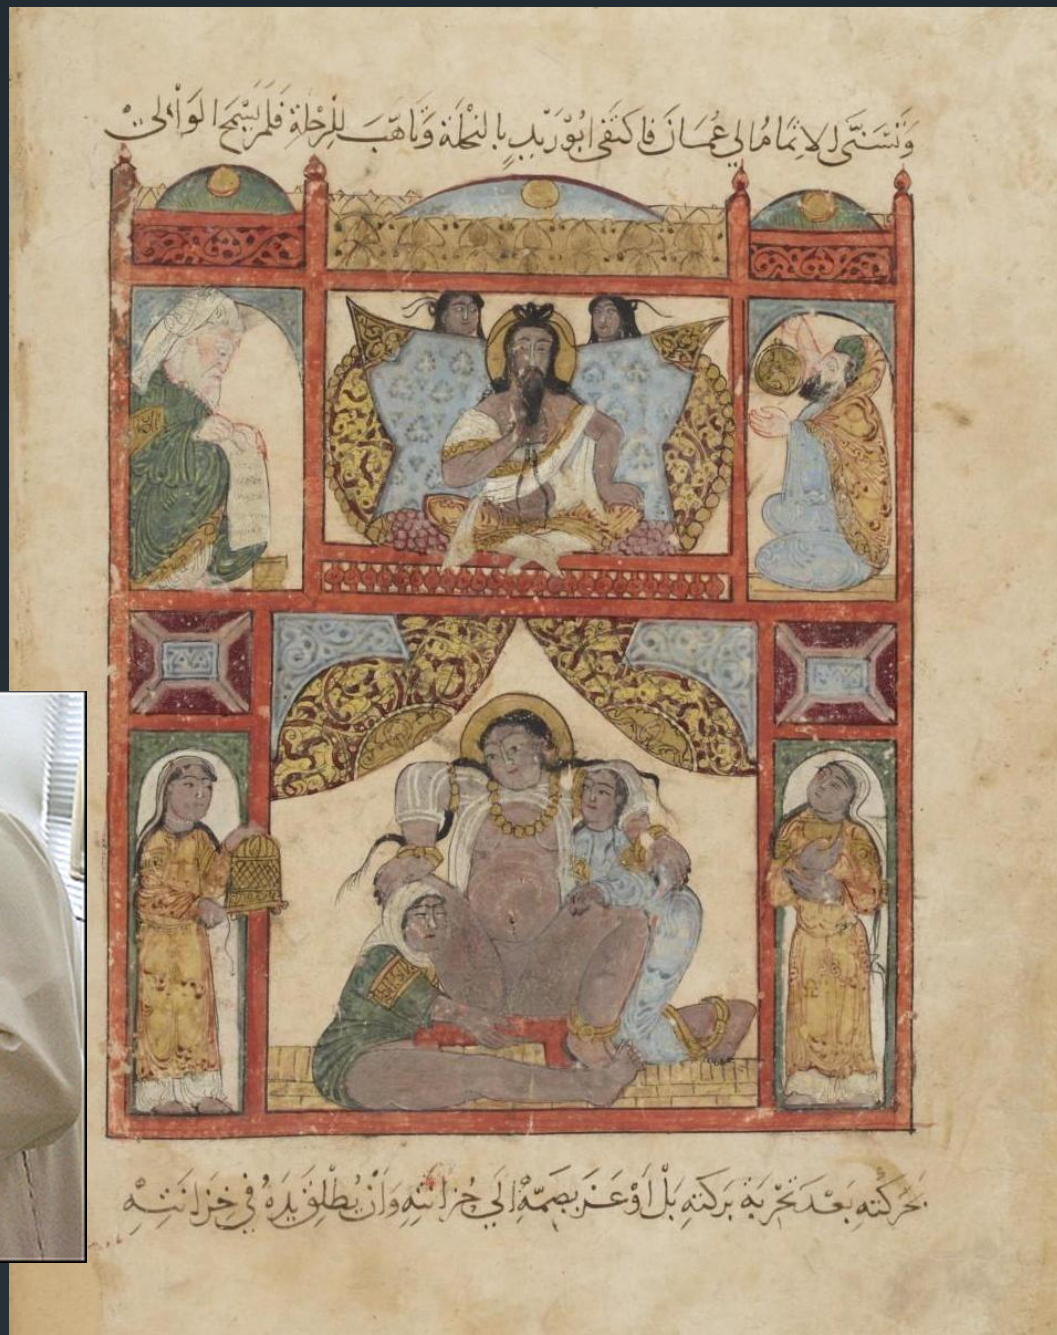 وَتَسَنَّى الاِتمَامُ الى عُمَانَ فَاكتَفَى ابُوْزَيْدٍ بِالنِحْلَةِ وَتَاهَّبَ لِلرِحْلَةِ فَلَمْ يَسْمَحِ الوَالىْ
بِحَرَكَتِهِ بَعْدَ تَجْرِبَةِ بَرَكَتِهِ بَلْ اَوْعَزَ بِضَمِّهْ اِلَى حُزَانَتِهِ وَاَنْ يُطْلِقَ يَدَهُ فِي خِزَانَتِهْ